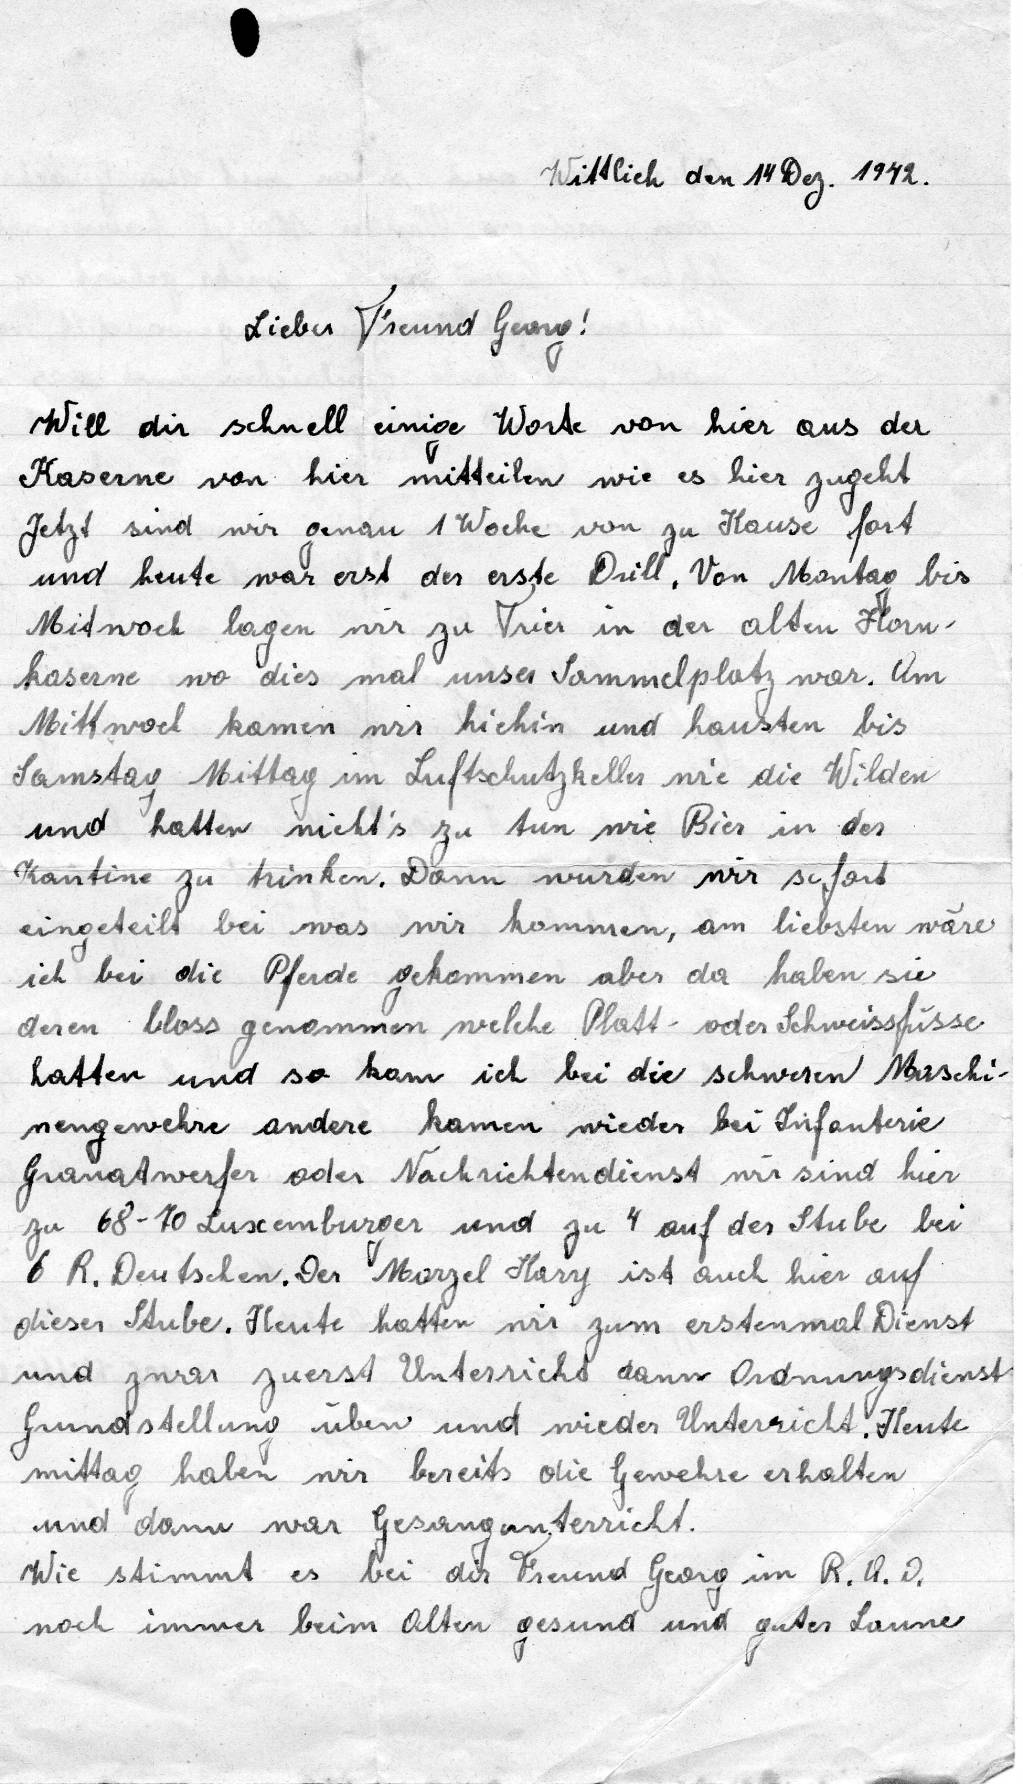 Wittlich den 14 Dez. 1942.
Lieber Freund Georg!
Will dir schnell einige Worte von hier aus der
Kaserne von hier mitteilen wie es hier zugeht
Jetzt sind wir genau 1 Woche von zu Hause fort
und heute war erst der erste Drill. Von Montag bis
Mitwoch lagen wir zu Trier in der alten Horn-
kaserne wo dies mal unser Sammelplatz war. Am
Mittwoch kamen wir hiehin und hausten bis
Samstag Mittag im Luftschutzkeller wie die Wilden
und hatten nicht's zu tun wie Bier in der
Kantine zu trinken. Dann wurden wir sofort
eingeteilt bei was wir kommen, am liebsten wäre
ich bei die Pferde gekommen aber da haben sie
deren bloss genommen welche Platt- oder Schweissfüsse
hatten und so kam ich bei die schweren Maschi-
nengewehre andere kamen wieder bei Infanterie
Granatwerfer oder Nachrichtendienst wir sind hier
zu 68-70 Luxemburger und zu 4 auf der Stube bei
6 R. Deutschen. Der Marzel Hary ist auch hier auf
dieser Stube. Heute hatten wir zum erstenmal Dienst
und zwar zuerst Unterricht dann Ordnungsdienst
Grundstellung üben und wieder Unterricht. Heute
mittag haben wir bereits die Gewehre erhalten
und dann war Gesangunterricht.
Wie stimmt es bei dir Freund Georg im R. A. D.
noch immer beim Alten gesund und guter Laune